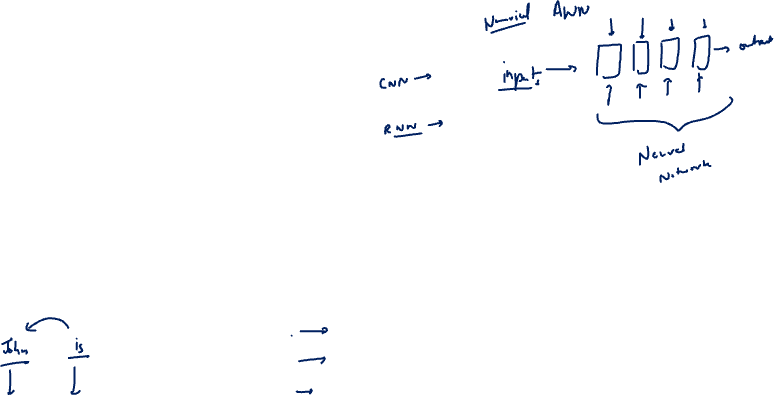 Numerical ANN
CNN → input → output
RNN →
Neural
Network
John is